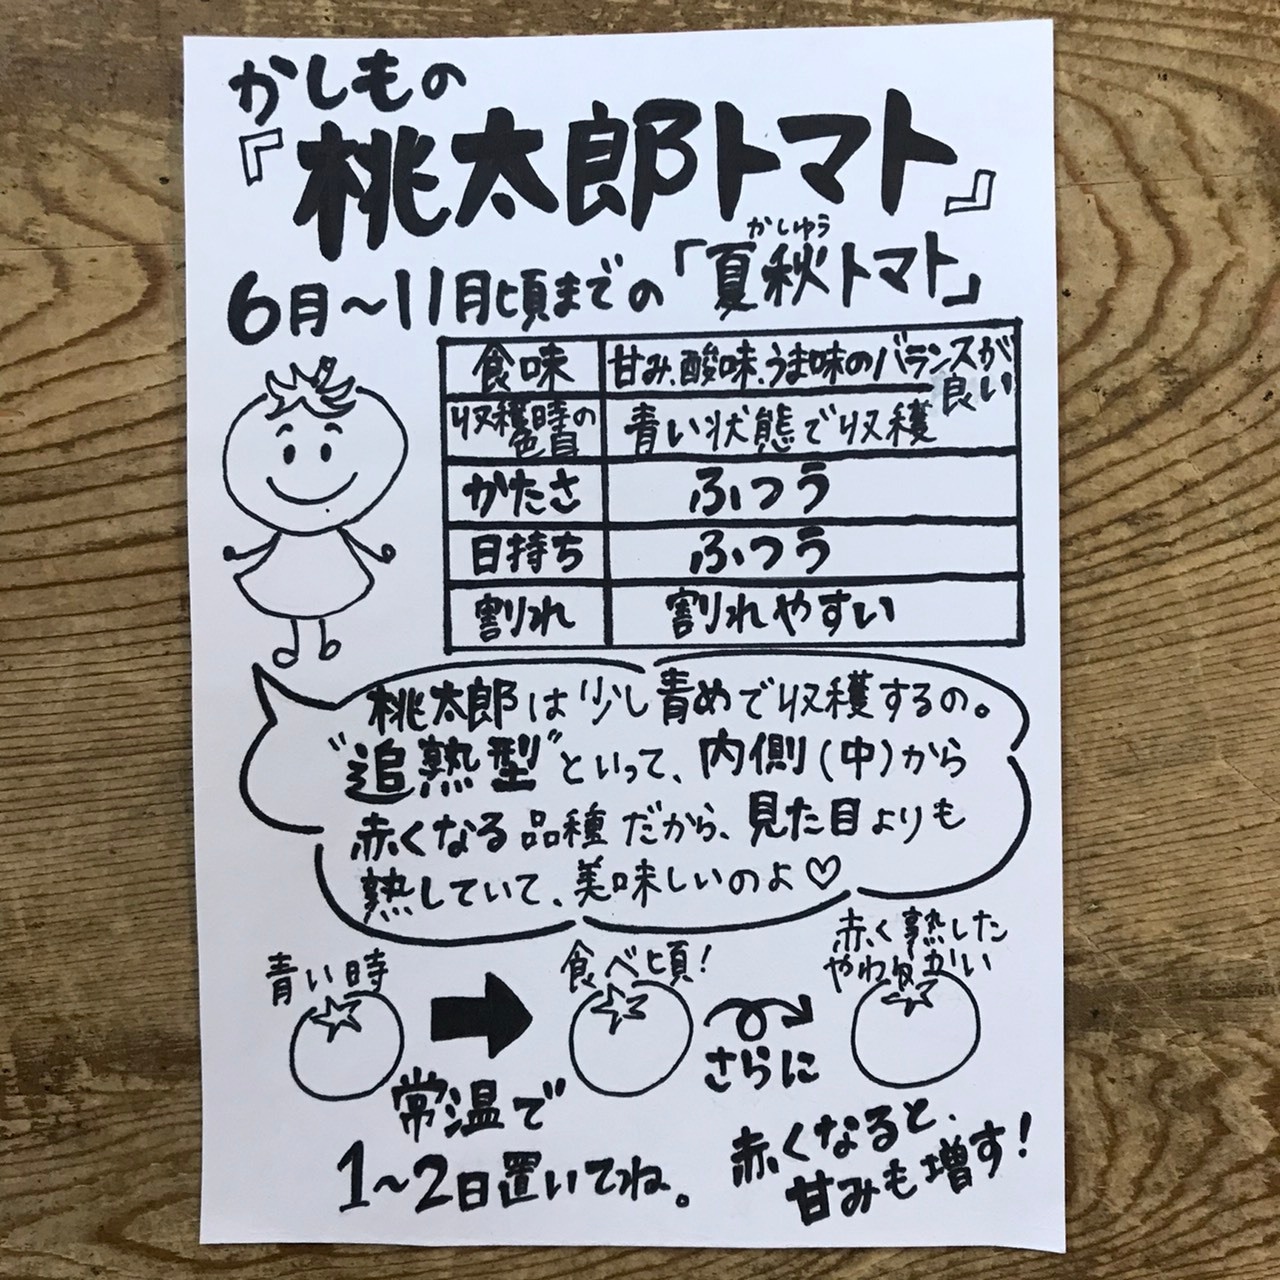 かしもの
『桃太郎トマト』
かしゅう
6月〜11月頃までの「夏秋トマト」
食味 甘み、酸味、うま味のバランスが良い
収穫時の色目 青い状態で収穫
かたさ ふつう
日持ち ふつう
割れ 割れやすい
桃太郎は少し青めで収穫するの。
"追熟型"といって、内側(中)から
赤くなる品種だから、見た目よりも
熟していて、美味しいのよ♡
青い時
食べ頃!
赤く熟した
やわらかい
さらに
常温で
1〜2日置いてね。
赤くなると、
甘みも増す!